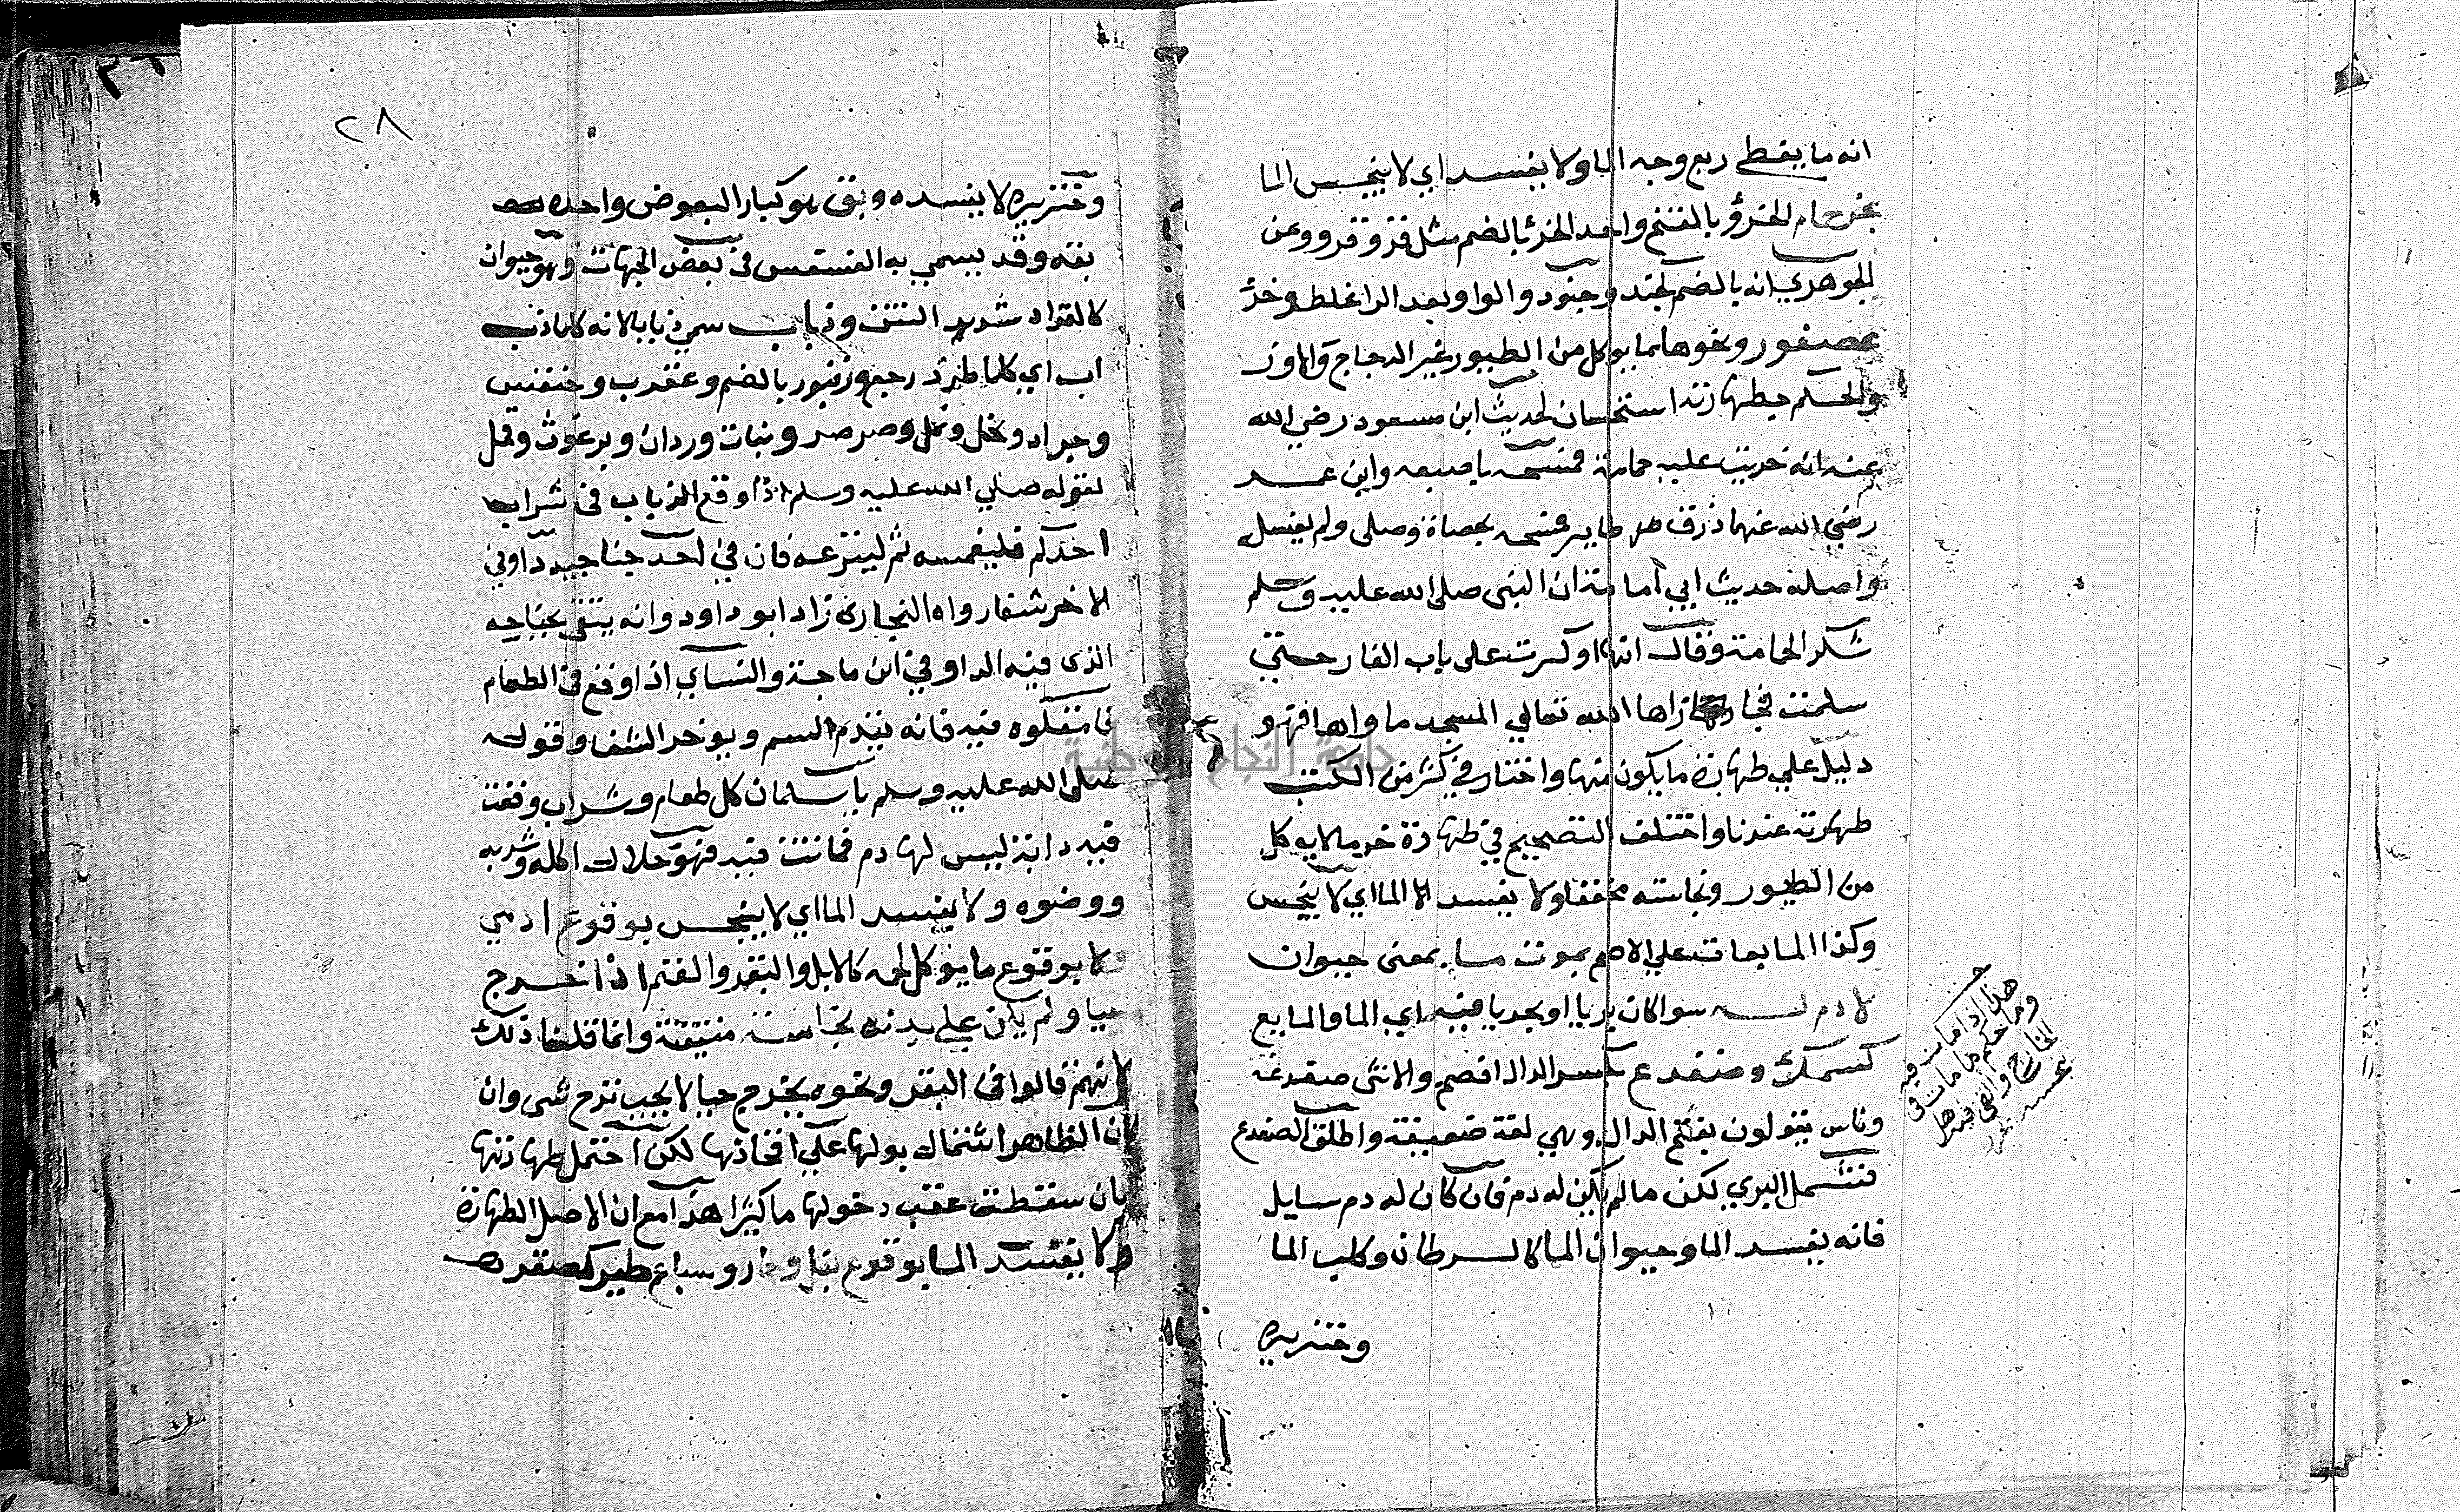 انه ما يغطي ربع وجه الما ولا يفسد اي لا ينجس الما
بخرء حمام الخرؤ بالفتح واحد الخرء بالضم مثل قرؤ وقرو وعن
الجوهري انه بالضم كجند وجنود والواو بعد الرا غلط وخرء
عصفور ونحوهما مما يوكل من الطيور غير الدجاج والاوز
والحكم بطهارته استحسان لحديث ابن مسعود رضي الله
عنه انه خريت عليه حمامة فمسحه باصبعه وابن عمر
رضي الله عنهما ذرق عليه طاير فمسحه بحصاة وصلى ولم يغسل
واصله حديث ابي أمامة ان النبي صلى الله عليه وسلم
شكر الحمامة وقال انها اوكرت على باب الغار حتي
سلمت فجازاها الله تعالي المسجد ماواها فهو
دليل علي طهارة ما يكون منها واختار في كثير من الكتب
طهارته عندنا واختلف التصحيح في طهارة خرء ما لا يوكل
من الطيور ونجاسته مخففا ولا يفسد الما اي لا ينجس
وكذا المايعات علي الاصح بموت ما بمعنى حيوان
لا دم له سوا كان بريا او بحريا فيه اي الما والمايع
كسمك وضفدع بكسر الدال افصح والانثى ضفدعة
وناس يقولون بفتح الدال وهي لغة ضعيفة واطلق الضفدع
فتشمل البري لكن ما لم يكن له دم فان كان له دم سايل
فانه يفسد الما وحيوان الما كالسرطان وكلب الما
وخنزيره
هذا اذا مات فيه
وما حكم ما مات في
الخارج والقي فيه
٢٨
وخنزيره لا يفسده وبق هو كبار البعوض واحده
بقة وقد يسمي به الفسفس في بعض الجهات وهو حيوان
كالقراد شديد النتن وذباب سمي ذبابا لانه كلما ذب
اب اي كلما طرد رجع وزنبور بالضم وعقرب وخنفس
وجراد ونحل ونمل وصرصر وبنات وردان وبرغوث وقمل
لقوله صلي الله عليه وسلم اذا وقع الذباب في شراب
احدكم فليغمسه ثم لينزعه فان في احد جناحيه دا وفي
الاخر شفا رواه البخاري زاد ابو داود وانه يتقي بجناحه
الذى فيه الدا وفي ابن ماجة والنساي اذا وقع في الطعام
فامقلوه فيه فانه يقدم السم ويوخر الشفا وقوله
صلى الله عليه وسلم يا سلمان كل طعام وشراب وقعت
فيه دابة ليس لها دم فماتت فيه فهو حلال اكله وشربه
ووضوه ولا يفسد الما اي لا ينجس بوقوع ادمي
ولا بوقوع ما يوكل لحمه كالابل والبقر والغنم اذا خرج
حيا ولم يكن علي بدنه نجاسة متيقنة وانما قلنا ذلك
لانهم قالوا في البقر ونحوه يخرج حيا لا يجب نزح شى وان
كان الظاهر اشتمال بولها علي افخاذها لكن احتمل طهارتها
بان سقطت عقب دخولها ما كثيرا هذا مع ان الاصل الطهارة
ولا يفسد الما بوقوع بغل وحمار وسباع طير كصقر